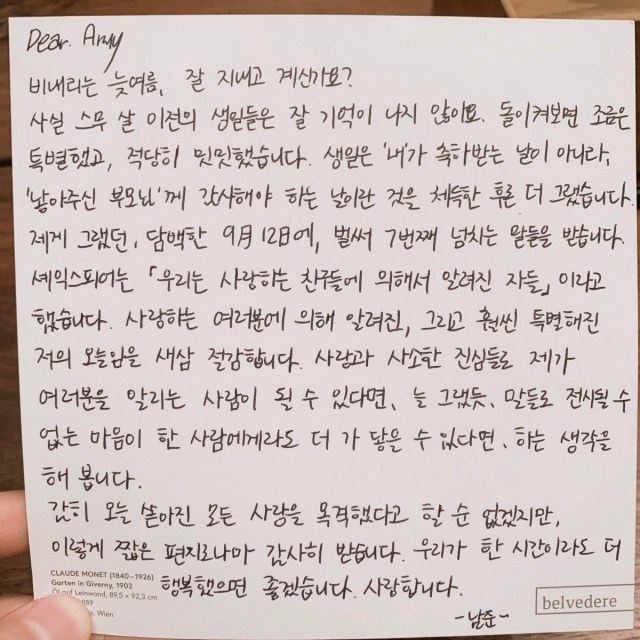 Dear. Army
비내리는 늦여름, 잘 지내고 계신가요?
사실 스무 살 이전의 생일들은 잘 기억이 나지 않아요. 돌이켜보면 조금은
특별했고, 적당히 밋밋했습니다. 생일은 '내'가 축하받는 날이 아니라,
'낳아주신 부모님'께 감사해야 하는 날이란 것을 체득한 후론 더 그랬습니다.
제게 그랬던, 담백한 9月 12日에, 벌써 7번째 넘치는 말들을 받습니다.
셰익스피어는 「우리는 사랑하는 친구들에 의해서 알려진 자들」이라고
했습니다. 사랑하는 여러분에 의해 알려진, 그리고 훨씬 특별해진
저의 오늘임을 새삼 절감합니다. 사람과 사소한 진심들로 제가
여러분을 알리는 사람이 될 수 있다면, 늘 그랬듯, 말들로 전시될 수
없는 마음이 한 사람에게라도 더 가 닿을 수 있다면, 하는 생각을
해 봅니다.
감히 오늘 쏟아진 모든 사랑을 목격했다고 할 순 없겠지만,
이렇게 짧은 편지로나마 감사히 받습니다. 우리가 한 시간이라도 더
행복했으면 좋겠습니다. 사랑합니다.
-남준-
CLAUDE MONET (1840–1926)
Garten in Giverny, 1902
Öl auf Leinwand, 89,5 x 92,3 cm
589
Wien
belvedere